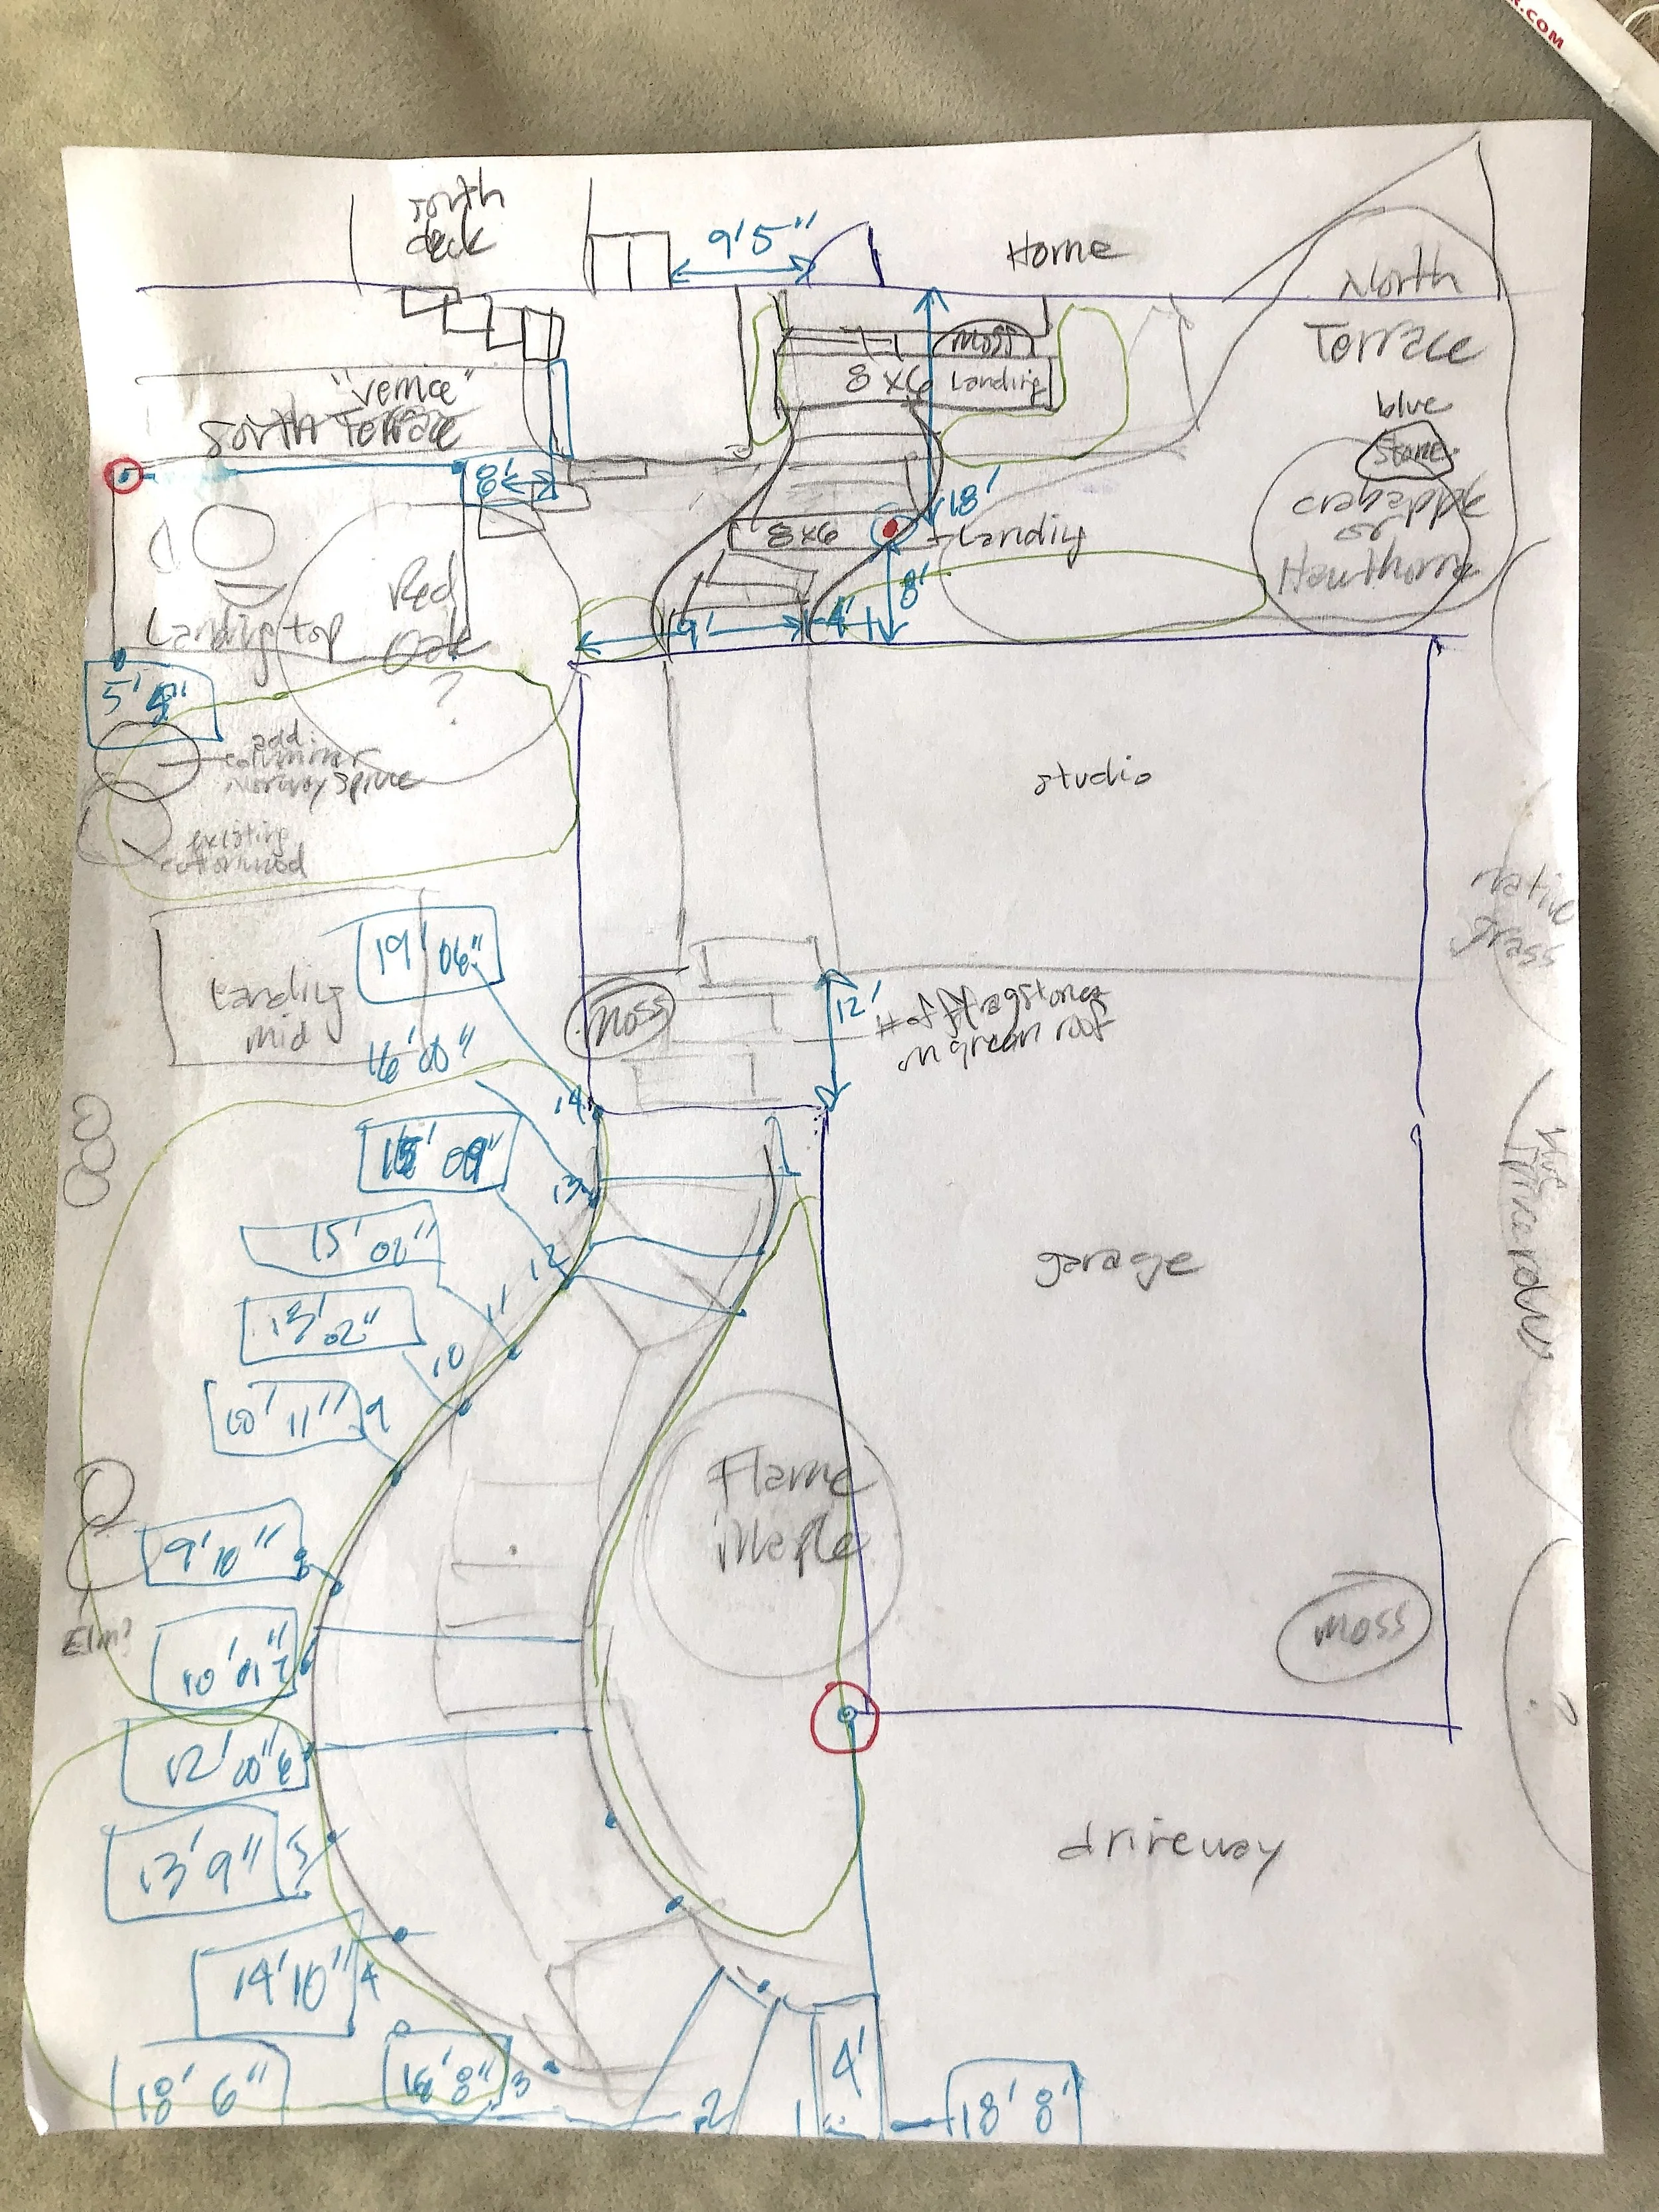 R.COM
south
deck
9'5"
Home
North
Terrace
moss
8x6 Landing
"venice"
South Terrace
blue
stone
crabapple
or
Hawthorne
8'
18'
8x6
Landing
8'
9'
4'
Red
Oak
?
Landing top
5'
add
columnar
Norway Spruce
existing
cottonwood
studio
native
grass
19' 06"
Landing
mid
moss
12'
# of flagstones
on green roof
16' 00"
14
13
15' 02"
12
11
garage
13' 02"
10
10' 11"
9
Flame
Maple
9' 10"
8
moss
Elm?
10' 01"
7
?
12' 00"
6
13' 9"
5
driveway
14' 10"
4
18' 6"
16' 8"
3
2
1
4'
18' 8"